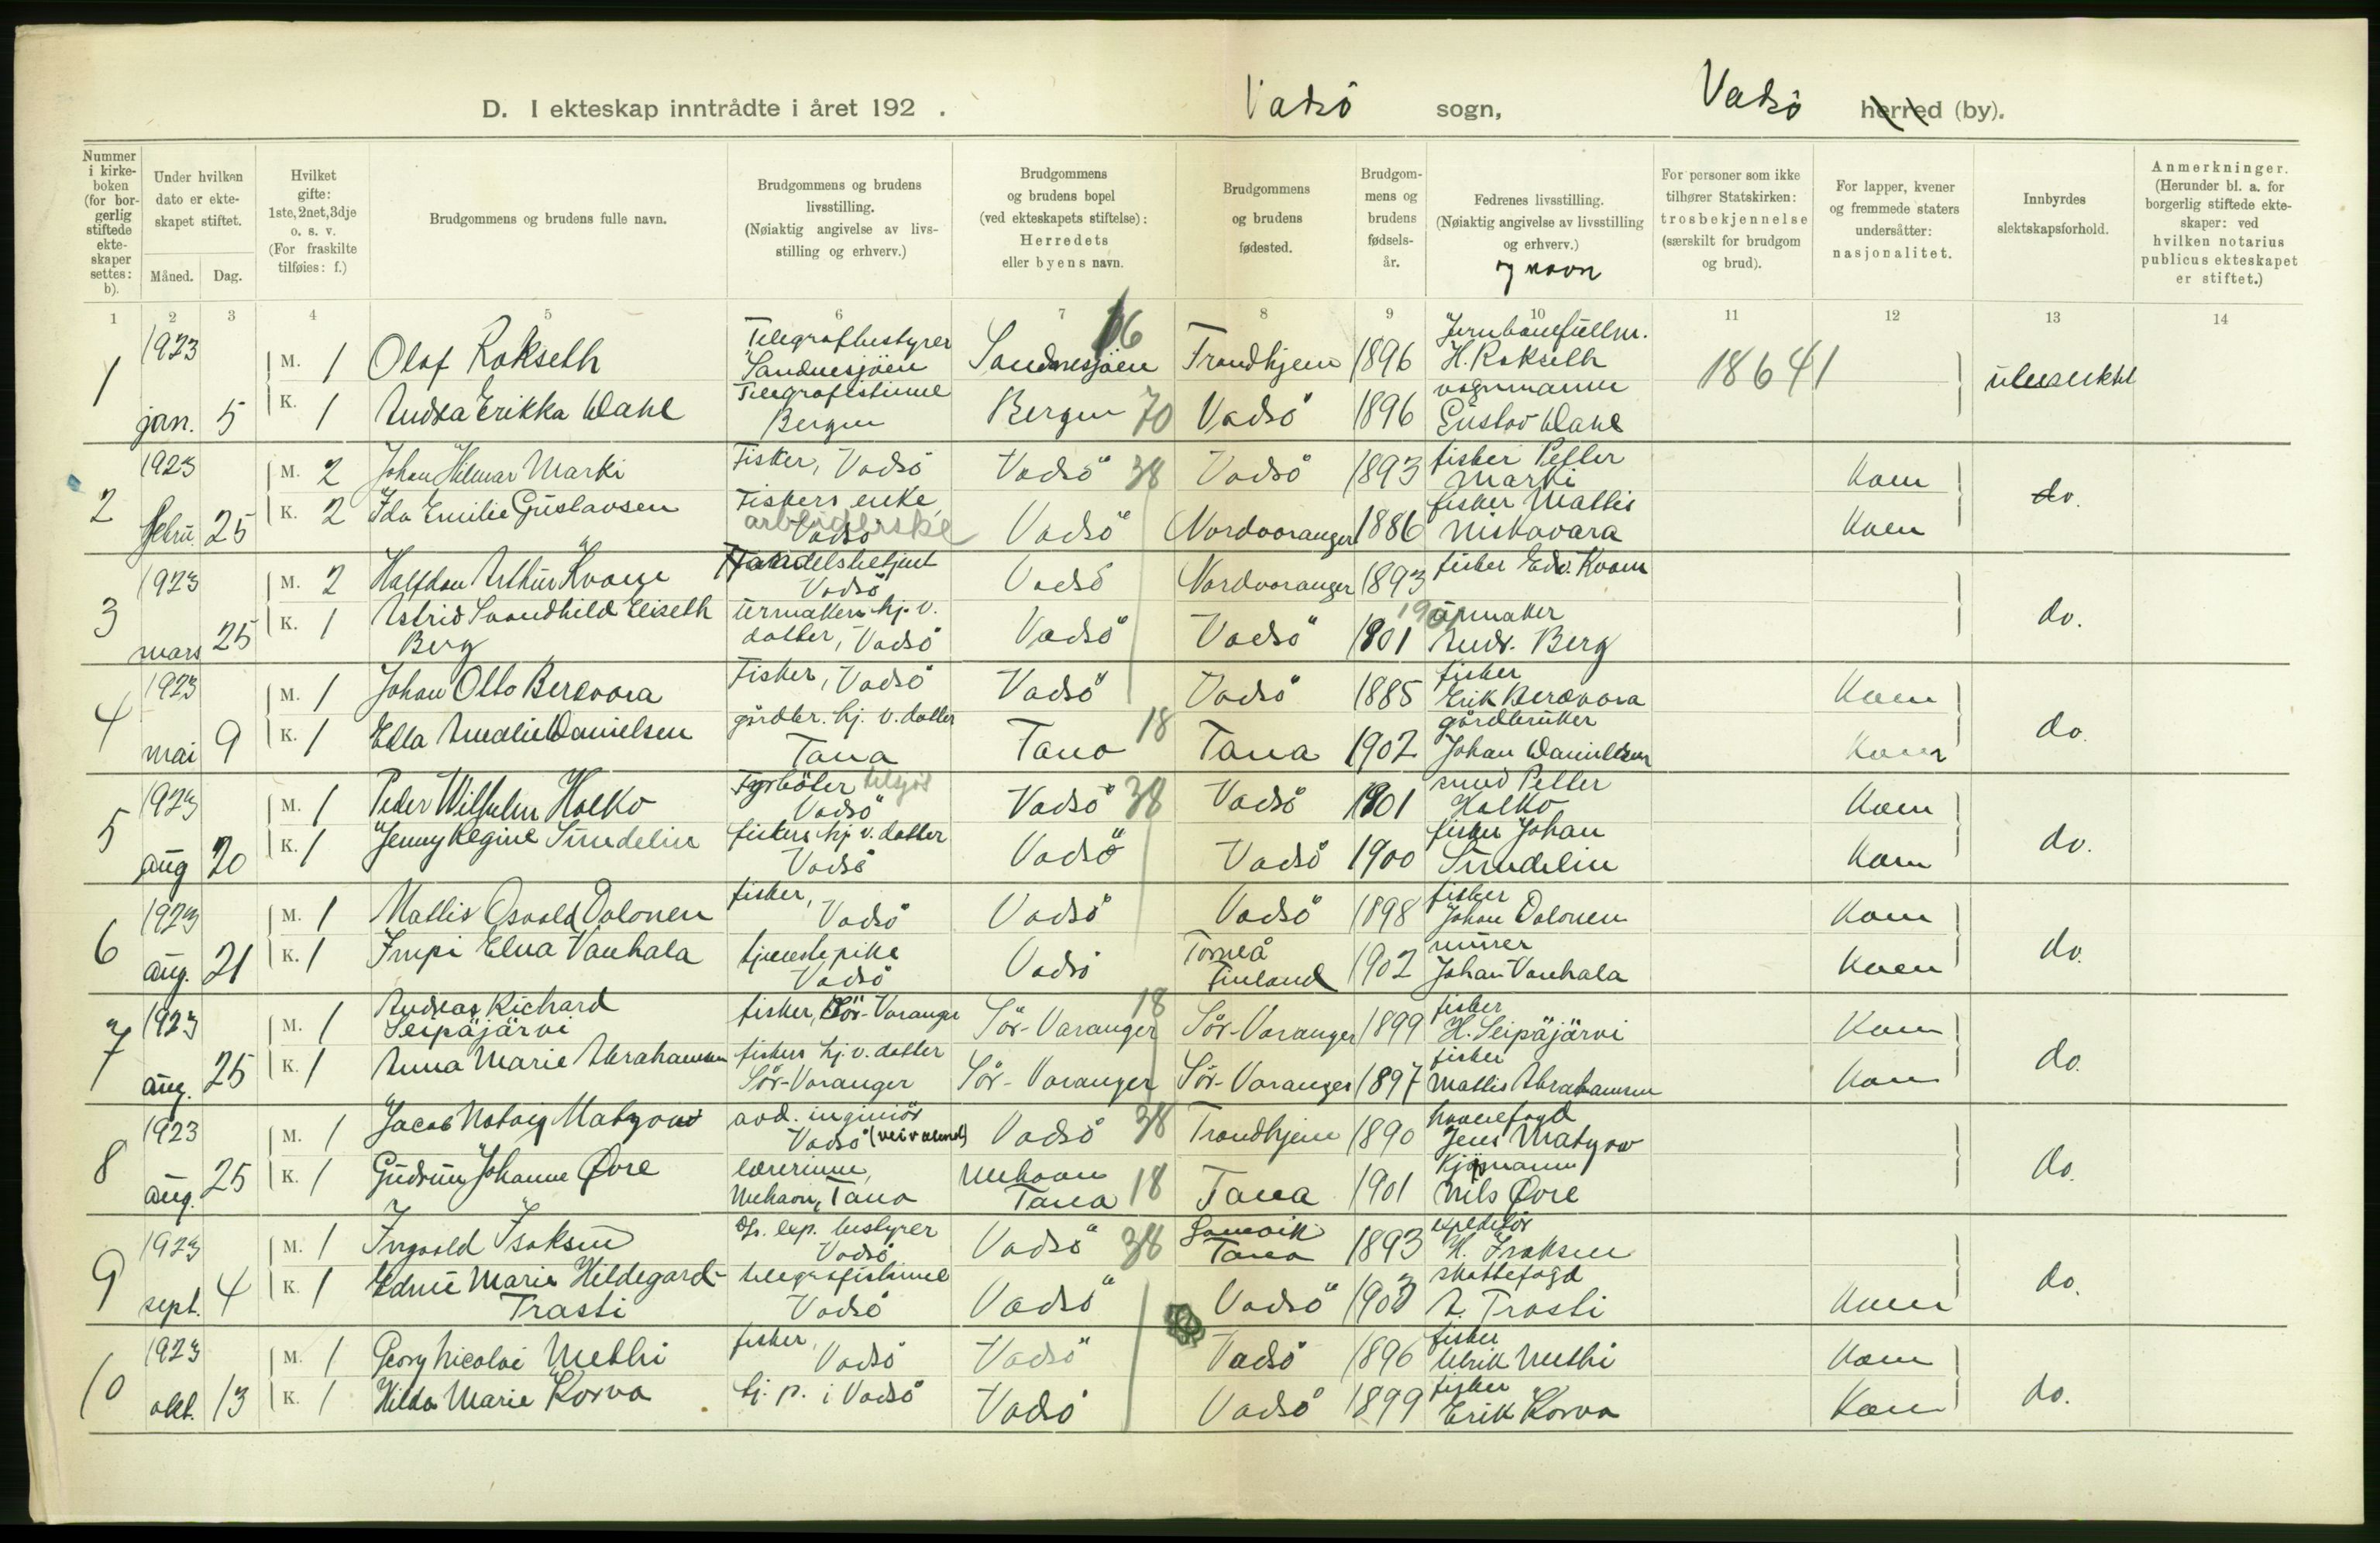 D. I ekteskap inntrådte i året 192 . Vadsö sogn, Vadsö herred (by).
Nummer i kirkeboken (for borgerlig stiftede ekteskaper settes: b).
Under hvilken dato er ekteskapet stiftet.
Måned. Dag.
Hvilket gifte: 1ste, 2net, 3dje o. s. v. (For fraskilte tilføies: f.)
Brudgommens og brudens fulle navn.
Brudgommens og brudens livsstilling. (Nøiaktig angivelse av livsstilling og erhverv.)
Brudgommens og brudens bopel (ved ekteskapets stiftelse): Herredets eller byens navn.
Brudgommens og brudens fødested.
Brudgommens og brudens fødselsår.
Fedrenes livsstilling. (Nøiaktig angivelse av livsstilling og erhverv.) og navn
For personer som ikke tilhører Statskirken: trosbekjennelse (særskilt for brudgom og brud).
For lapper, kvener og fremmede staters undersåtter: nasjonalitet.
Innbyrdes slektskapsforhold.
Anmerkninger. (Herunder bl. a. for borgerlig stiftede ekteskaper: ved hvilken notarius publicus ekteskapet er stiftet.)
1 2 3 4 5 6 7 8 9 10 11 12 13 14
1 1923 jan. 5
M. 1 Olaf Rokseth Telegrafbestyrer Sandnesjöen Sandnesjöen 16 Trondhjem 1896 H. Rokseth 18641
K. 1 Andrea Erikka Dahl Telegrafistinne Bergen Bergen 70 Vadsö 1896 vognmann Gustav Dahl
2 1923 febru. 25
M. 2 Johan Hilmar Marki Fisker, Vadsö Vadsö 38 Vadsö 1893 fisker Petter Marki kven do.
K. 2 Ida Emilie Gustavsen Fiskers enke, arbeiderske Vadsö Vadsö Nordvaranger 1886 fisker Mattis Niskavara kven
3 1923 mars 25
M. 2 Halfdan Arthur Kvam Handelsbetjent Vadsö Vadsö Nordvaranger 1893 fisker Edv. Kvam do.
K. 1 Astrid Svandhild Eliseth Berg urmakers hj. v. datter, Vadsö Vadsö Vadsö 1901 1901 urmaker Andr. Berg
4 1923 mai 9
M. 1 Johan Otto Beravara Fisker, Vadsö Vadsö Vadsö 1885 fisker Erik Beravara kven do.
K. 1 Ella Amalie Danielsen gårdbr. hj. v. datter Tana Tana 18 Tana 1902 gårdbruker Johan Danielsen kven
5 1923 aug 20
M. 1 Peder Wilhelm Halko Fyrböter Vadsö Vadsö 38 Vadsö 1901 smed Petter Halko kven do.
K. 1 Jenny Regine Sundelin fiskers hj. v. datter Vadsö Vadsö Vadsö 1900 fisker Johan Sundelin kven
6 1923 aug. 21
M. 1 Mattis Osvald Dolonen fisker, Vadsö Vadsö Vadsö 1898 fisker Johan Dolonen kven do.
K. 1 Impi Elna Vanhala tjenestepike Vadsö Vadsö Torneå Finland 1902 murer Johan Vanhala kven
7 1923 aug. 25
M. 1 Andreas Richard Seipäjärvi fisker, Sör-Varanger Sör-Varanger 18 Sör-Varanger 1899 fisker H. Seipäjärvi kven do.
K. 1 Anna Marie Abrahamsen fiskers hj. v. datter Sör-Varanger Sör-Varanger Sör-Varanger 1897 fisker Mattis Abrahamsen kven
8 1923 aug. 25
M. 1 Jacob Matzow avd. ingeniör Vadsö Vadsö 38 Trondhjem 1890 havnefogd Jens Matzow do.
K. 1 Gudrun Johanne Øvre lærerinne, Mehavn, Tana Mehavn Tana 18 Tana 1901 Kjöpmann Nils Øvre
9 1923 sept. 4
M. 1 Ingvald Isaksen Ds. exp. bestyrer Vadsö Vadsö 38 Gamvik Tana 1893 expeditör H. Isaksen do.
K. 1 Marie Hildegard Trasti telegrafistinne Vadsö Vadsö Vadsö 1903 skattefogd A. Trasti kven
10 1923 okt. 13
M. 1 Georg Nicolai Methi fisker, Vadsö Vadsö Vadsö 1896 fisker Ulrik Methi kven do.
K. 1 Hilda Marie Korva tj. p. i Vadsö Vadsö Vadsö 1899 fisker Erik Korva kven